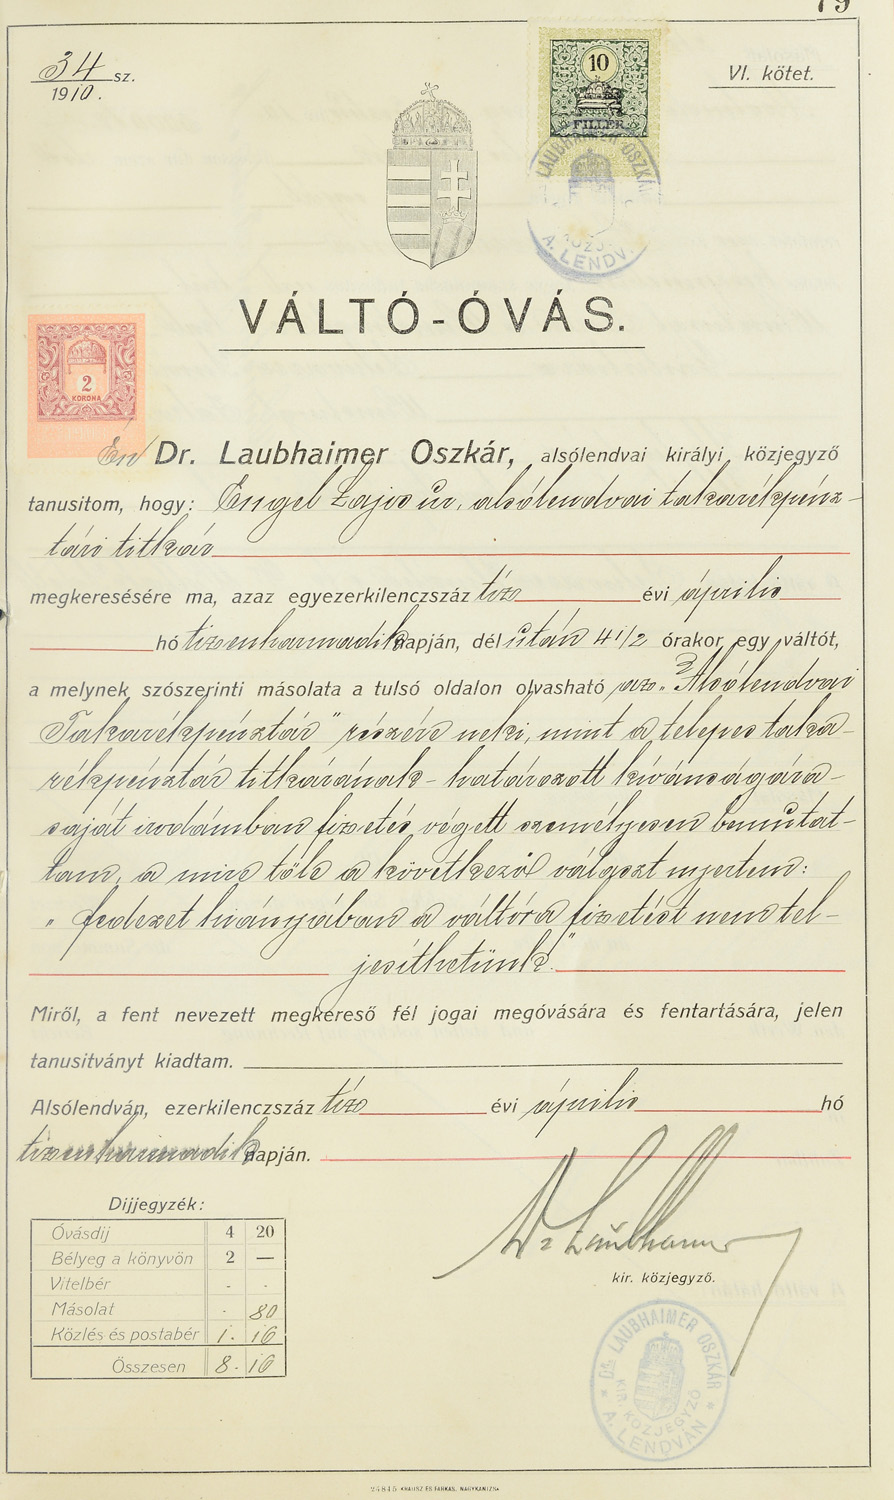 79
34 sz.
1910.
VI. kötet.
10
FILLÉR
LAUBHAIMER OSZKÁR
A. LENDV.
VÁLTÓ-ÓVÁS.
2
KORONA
Én Dr. Laubhaimer Oszkár, alsólendvai királyi közjegyző
tanusitom, hogy: Engel Lajos úr, alsólendvai takarékpénz-
tári titkár
megkeresésére ma, azaz egyezerkilenczszáz tíz évi április
hó tizenharmadik napján, dél után 4 1/2 órakor egy váltót,
a melynek szószerinti másolata a tulsó oldalon olvasható az „Alsólendvai
Takarékpénztár" részére neki, mint a telepes taka-
rékpénztár titkárának - határozott kívánságára -
saját irodámban fizetés végett személyesen bemutat-
tam, a mire tőle a következő választ nyertem:
„fedezet hiányjában a váltóra fizetést nem tel-
jesíthetünk."
Miről, a fent nevezett megkereső fél jogai megóvására és fentartására, jelen
tanusitványt kiadtam.
Alsólendván, ezerkilenczszáz tíz évi április hó
tizenharmadik napján.
Dijjegyzék:
Óvásdij 4 20
Bélyeg a könyvön 2 —
Vitelbér - -
Másolat - 80
Közlés és postabér 1. 16
Összesen 8. 16
Dr Laubhaimer
kir. közjegyző.
Dr. LAUBHAIMER OSZKÁR
KIR. KÖZJEGYZŐ
A. LENDVÁN
24845 KRAUSZ ÉS FARKAS, NAGYKANIZSA